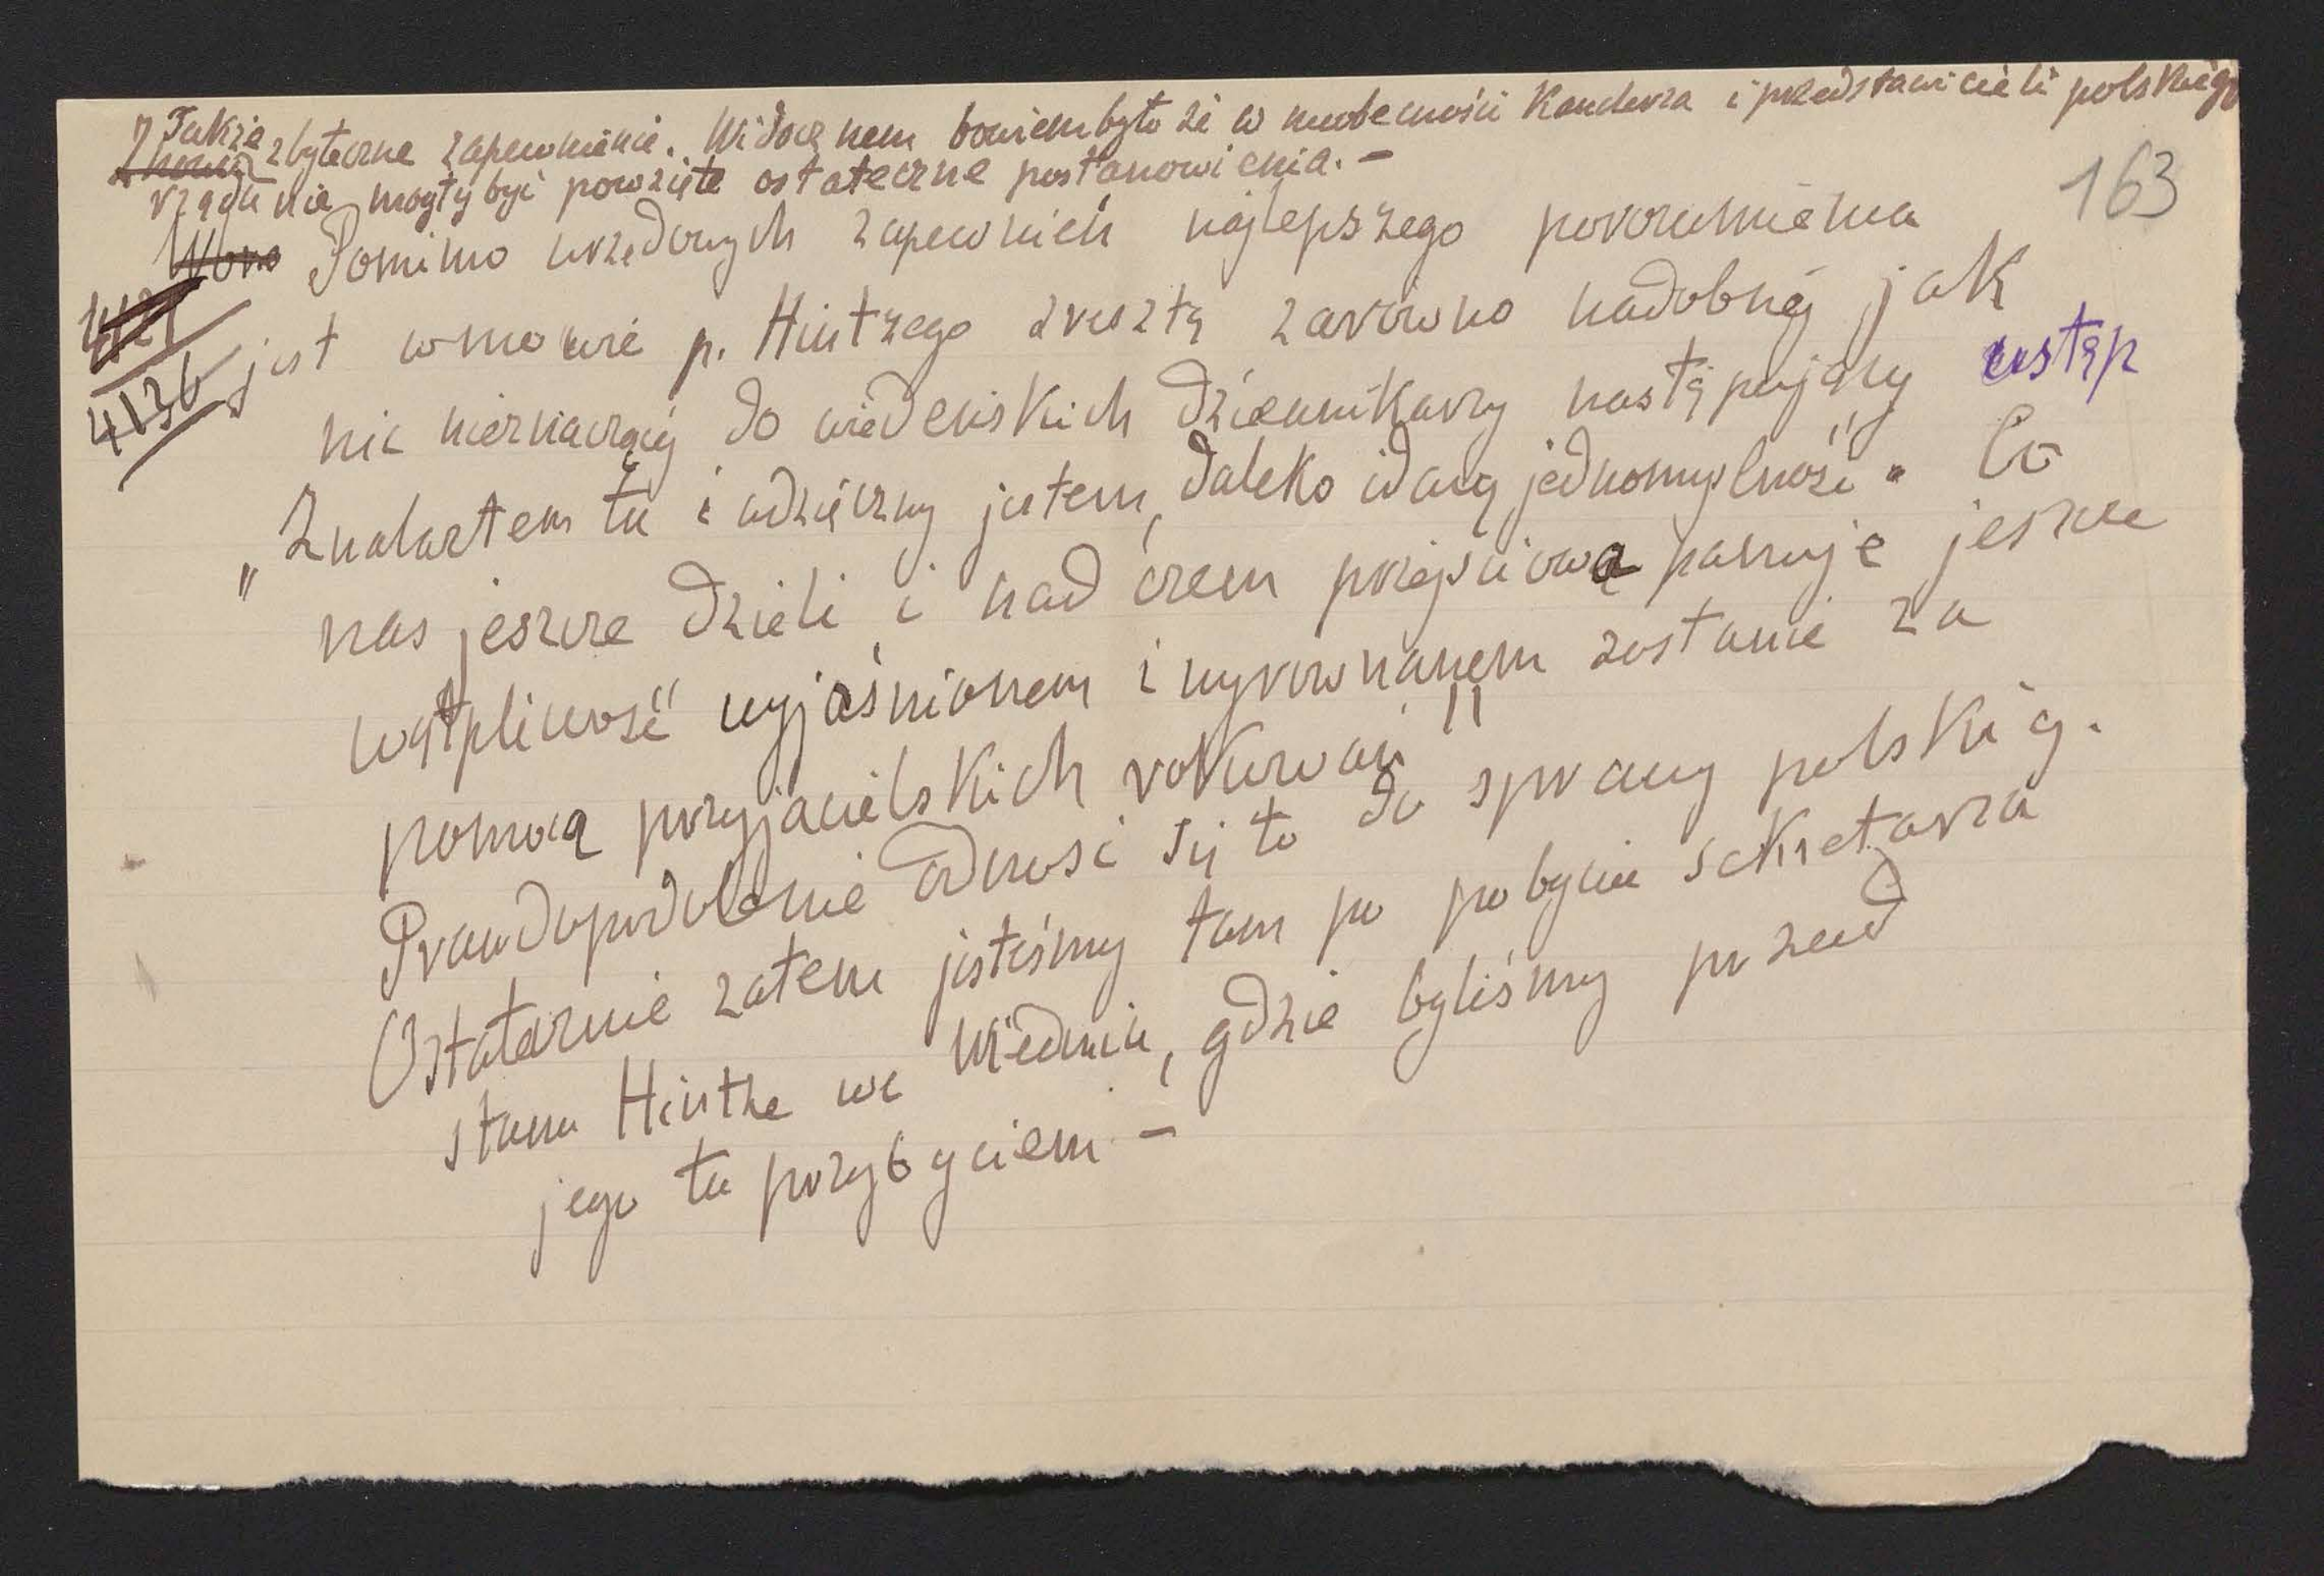 Także zbyteczne zapewnienie. Widocznem bowiem było że w nieobecności Kanclerza i przedstawicieli polskiego
rządu nie mogły być powzięte ostateczne postanowienia. –
163
Pomimo urzędowych zapewnień najlepszego porozumienia
4136
jest w mowie p. Hintzego zresztą zarówno nadobnej jak
nic nieznaczącej do wiedeńskich dziennikarzy następujący ustęp
„Znalazłem tu i wdzięczny jestem, daleko idącą jednomyślność". Co
nas jeszcze dzieli i nad czem przejściowa panuje jeszcze
wątpliwość" wyjaśnionem i wyrównanem zostanie za
pomocą przyjacielskich rokowań"
Prawdopodobnie odnosi się to do sprawy polskiej.
Ostatecznie zatem jesteśmy tam po pobycie sekretarza
stanu Hintze we Wiedniu, gdzie byliśmy przed
jego tu przybyciem –